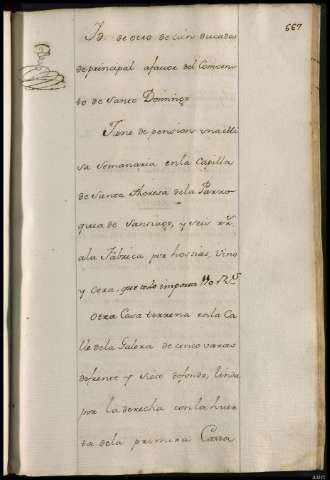 667
Id. de otro de cien ducados
de principal afavor del Comven
to de Santo Domingo
Tiene de pension una Mi
sa semanaria en la Capilla
de Santa Theresa de la Parro
quia de Santiago, y seis rrs.
ala Fabrica por hostias, vino
y cera, que todo importa
Otra Casa terrena en la Ca
lle de la Galera de cinco varas
de frente y siete de fondo, linda
por la derecha con la huer
ta de la primera Casa